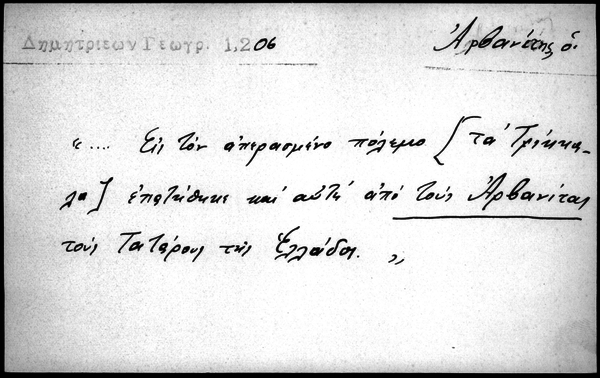 Δημητριέων Γεωγρ. 1,206
Ἀρβανίτης ὁ.
«.... Εἰς τὸν ἀπερασμένο πόλεμο [τὰ Τρίκκα-
λα] ἐπατήθηκε καὶ αὐτὴ ἀπό τοὺς Ἀρβανίτας
τοὺς Τατάρους τῆς Ἑλλάδος. „